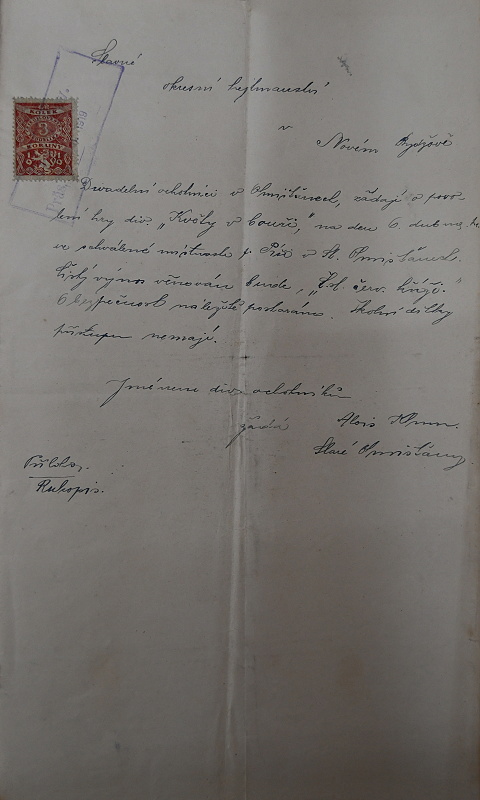 Slavné
okresní hejtmanství
v
Novém Bydžově
KOLEK
3
KORUNY
1919
Divadelní ochotníci v Smiřicích, žádají o povo-
lení hry div. „Květy v bouři", na den 6. dubna,
ve schválené místnosti p. v St. Smiřicích.
Čistý výnos věnován bude, „Čsl. červ. kříži."
O bezpečnost náležitě postaráno. Školní dítky
přístupu nemají.
Jménem div. ochotníků
žádá Alois
Staré
Příloha.
Rukopis.